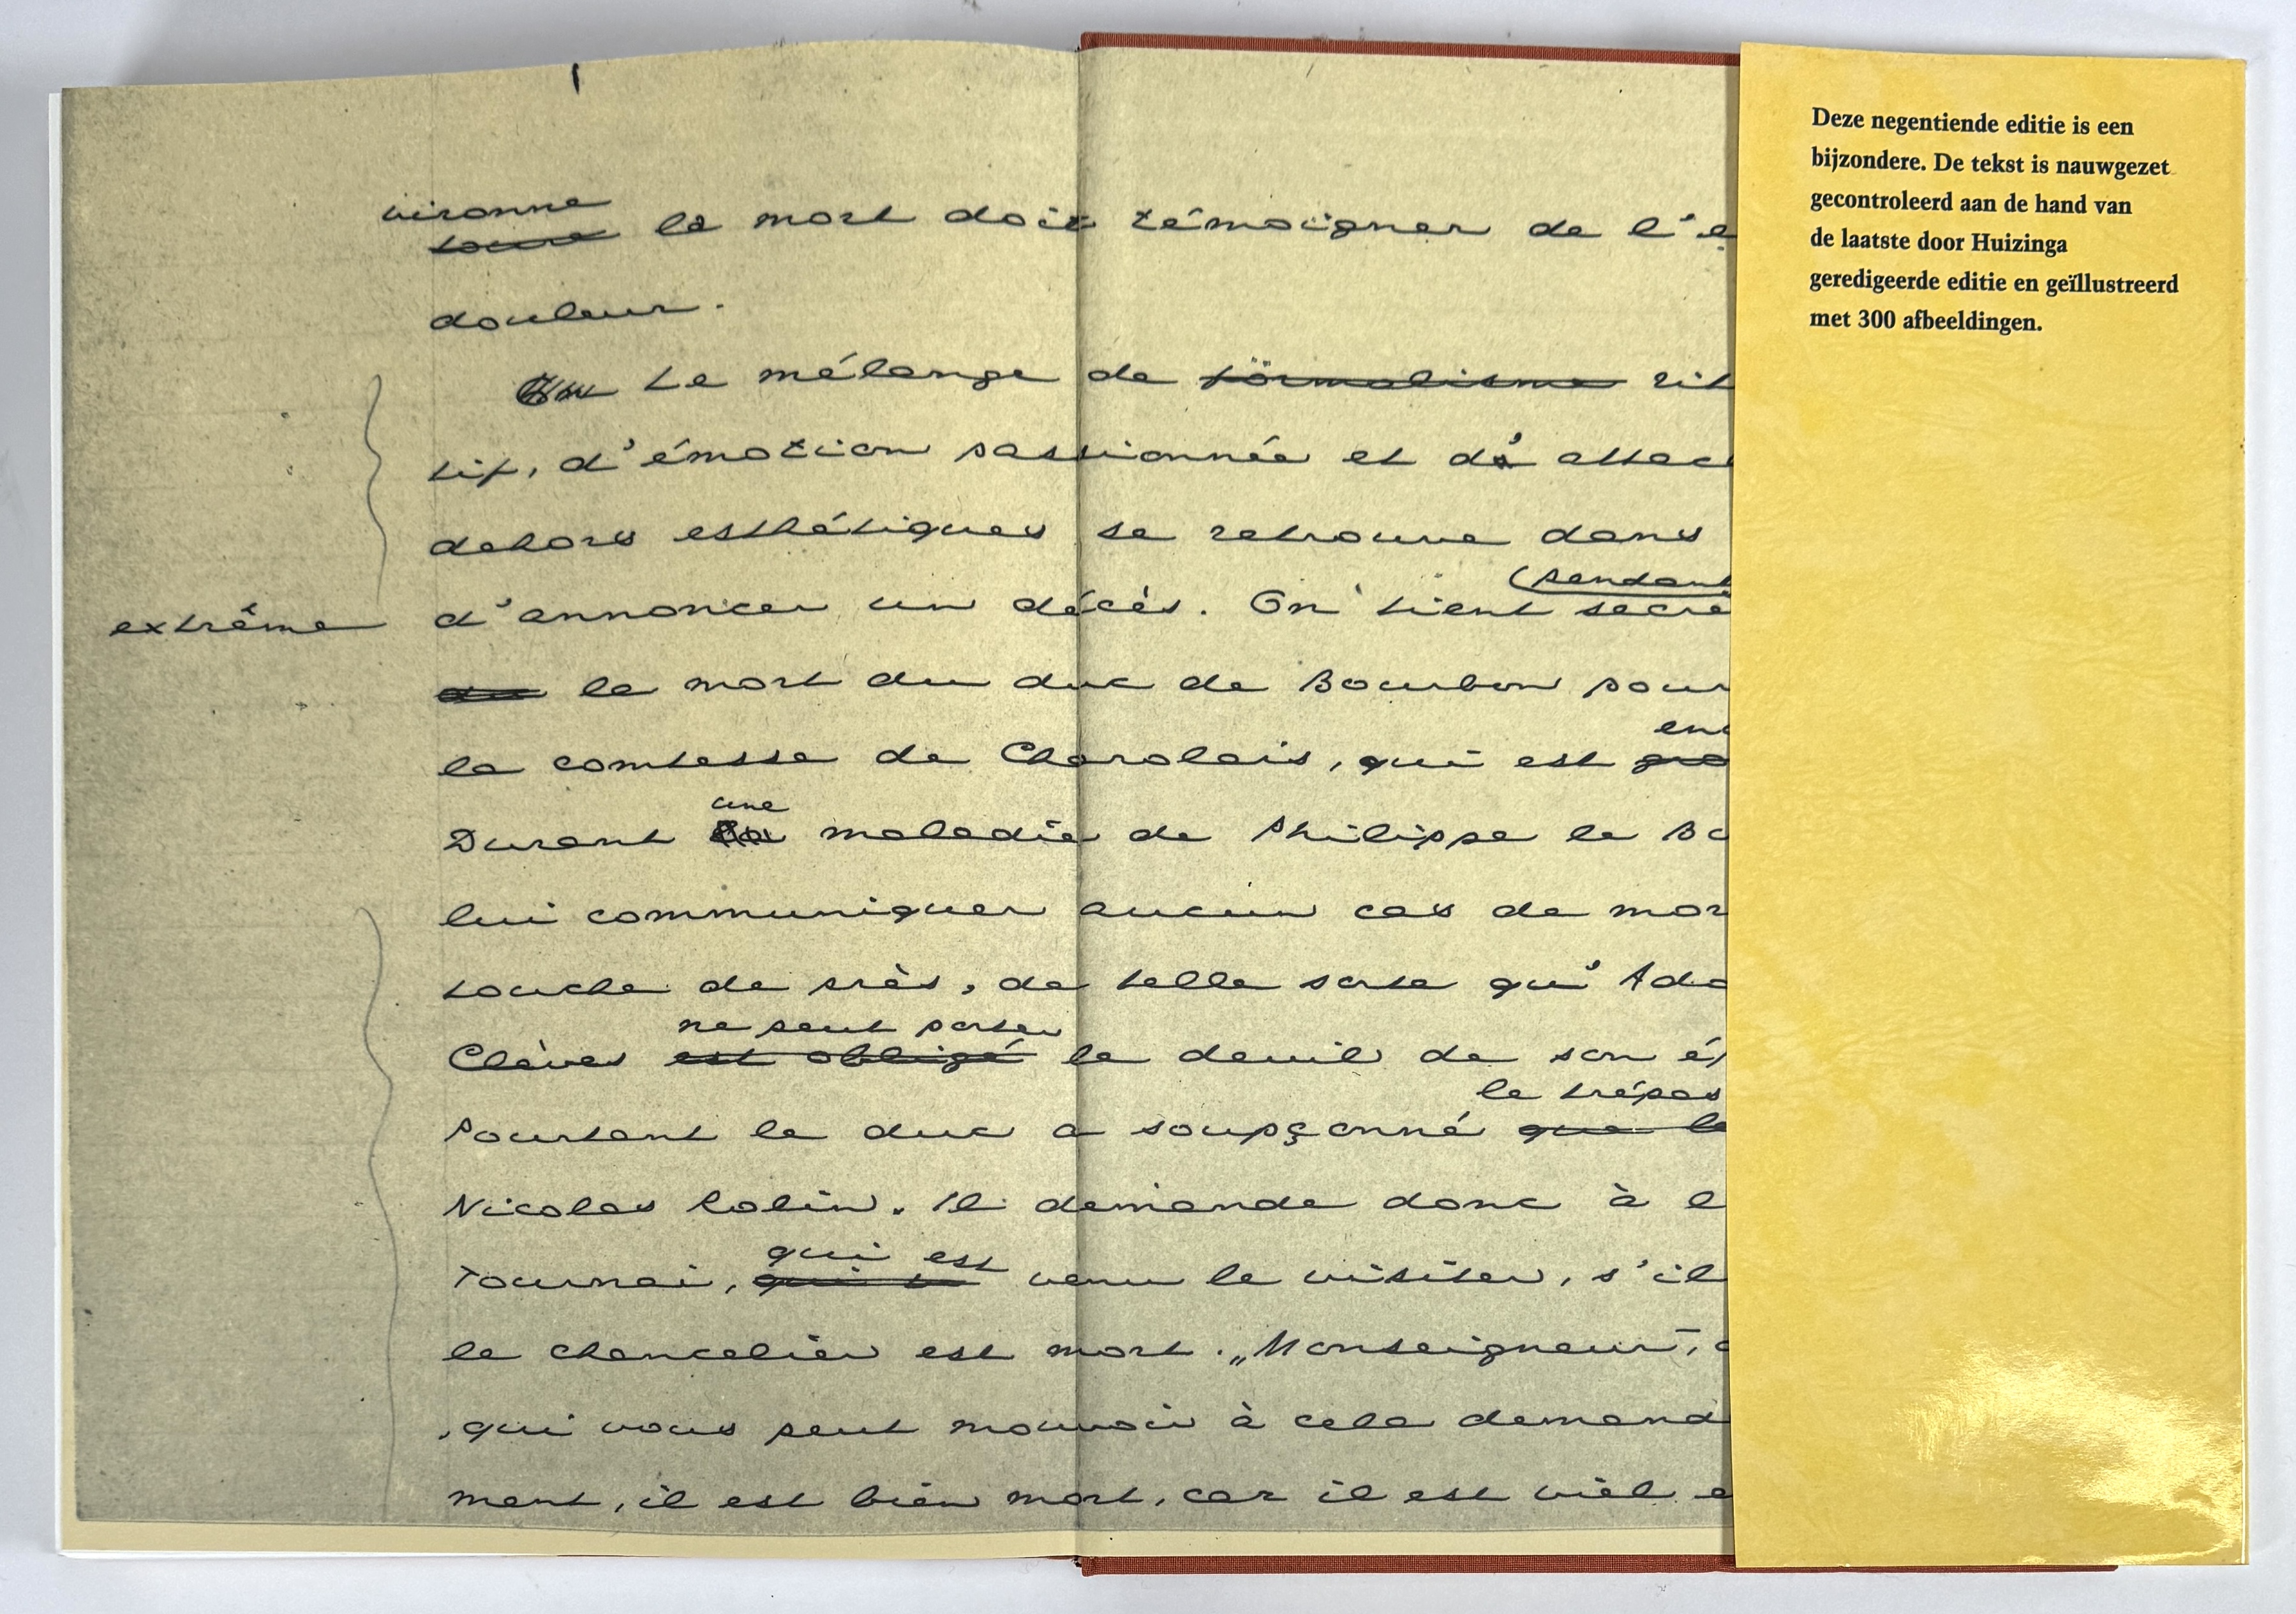 vironne
la mort doit témoigner de l'e
douleur.
Le mélange de formalisme rit
tif, d'émotion passionnée et d' attac
dehors esthétiques se retrouve dans
(pendant
extrême d'annoncer un décès. On tient secrè
la mort du duc de Bourbon pour
en
la comtesse de Charolais, qui est
une
Durant maladie de Philippe le Bo
lui communiquer aucun cas de mor
touche de près, de telle sorte qu' Ado
ne peut porter
Clèves est obligé le deuil de son é
le trépas
Pourtant le duc a soupçonné que le
Nicolas Rolin. Il demande donc à l
qui est
Tournai, venu le visiter, s'il
le chancelier est mort. „Monseigneur",
qui vous peut mouvoir à cela demand
ment, il est bien mort, car il est viel e
Deze negentiende editie is een
bijzondere. De tekst is nauwgezet
gecontroleerd aan de hand van
de laatste door Huizinga
geredigeerde editie en geïllustreerd
met 300 afbeeldingen.